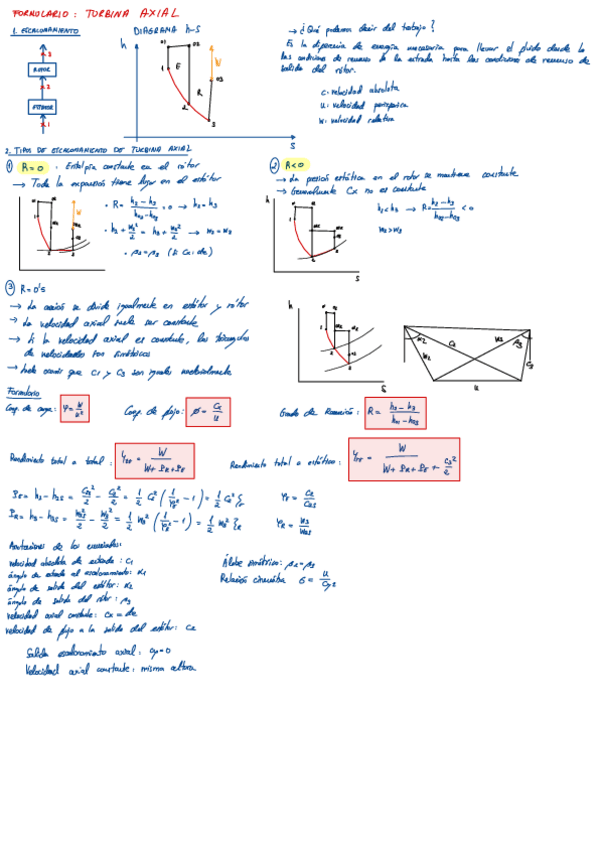 FORMULARIO: TURBINA AXIAL
1. ESCALONAMIENTO
DIAGRAMA h-S
→ ¿Qué podemos decir del trabajo?
Es la diferencia de energía necesaria para llevar el fluido desde
las condiciones de remanso de la entrada hasta las condiciones de remanso de
salida del rotor.
C: velocidad absoluta
U: velocidad periférica
W: velocidad relativa
ROTOR
ESTATOR
3
2
1
h
01
02
03
1
E
R
W
2
3
S
2. TIPOS DE ESCALONAMIENTO DE TURBINA AXIAL
① R=0 . Entalpía constante en el rótor
→ Toda la expansión tiene lugar en el estátor
· R = (h2 - h3)/(h01-h03) = 0 → h2 = h3
· h2 + w2²/2 = h3 + w3²/2 → w2 = w3
· β2=β3 (si Cx: cte)
② R<0
→ La presión estática en el rotor se mantiene constante
→ Generalmente Cx no es constante
h2<h3 → R = (h2-h3)/(h01-h03) < 0
w2>w3
③ R=0's
→ La acción se divide igualmente en estátor y rótor
→ La velocidad axial suele ser constante
→ Si la velocidad axial es constante, los triángulos
de velocidades son simétricos
→ Suele ocurrir que C1 y C3 son iguales vectorialmente
Formulario
Coef. de carga: Ψ = W/u²
Coef. de flujo: ø = Cx/u
Grado de Reacción: R =
Rendimiento total a total: = W/(W+ +)
Rendimiento total a estático: = W/(W+ + + C3²/2)
= h2-h2s = C2s²/2 - C2²/2 = 1/2 C2² (1/ - 1) = 1/2 C2²
= h3-h3s = w3s²/2 - w3²/2 = 1/2 w3² (1/ - 1) = 1/2 w3²
= C2/C2s
= w3/w3s
Anotaciones de los enunciados:
velocidad absoluta de entrada: C1
ángulo de entrada al escalonamiento: α1
ángulo de salida del estátor: α2
ángulo de salida del rótor: β3
velocidad axial constante: Cx = cte
velocidad de flujo a la salida del estátor: C2
Álabe simétrico: β2=β3
Relación cinemática σ =
Salida escalonamiento axial: =0
Velocidad axial constante: misma altura